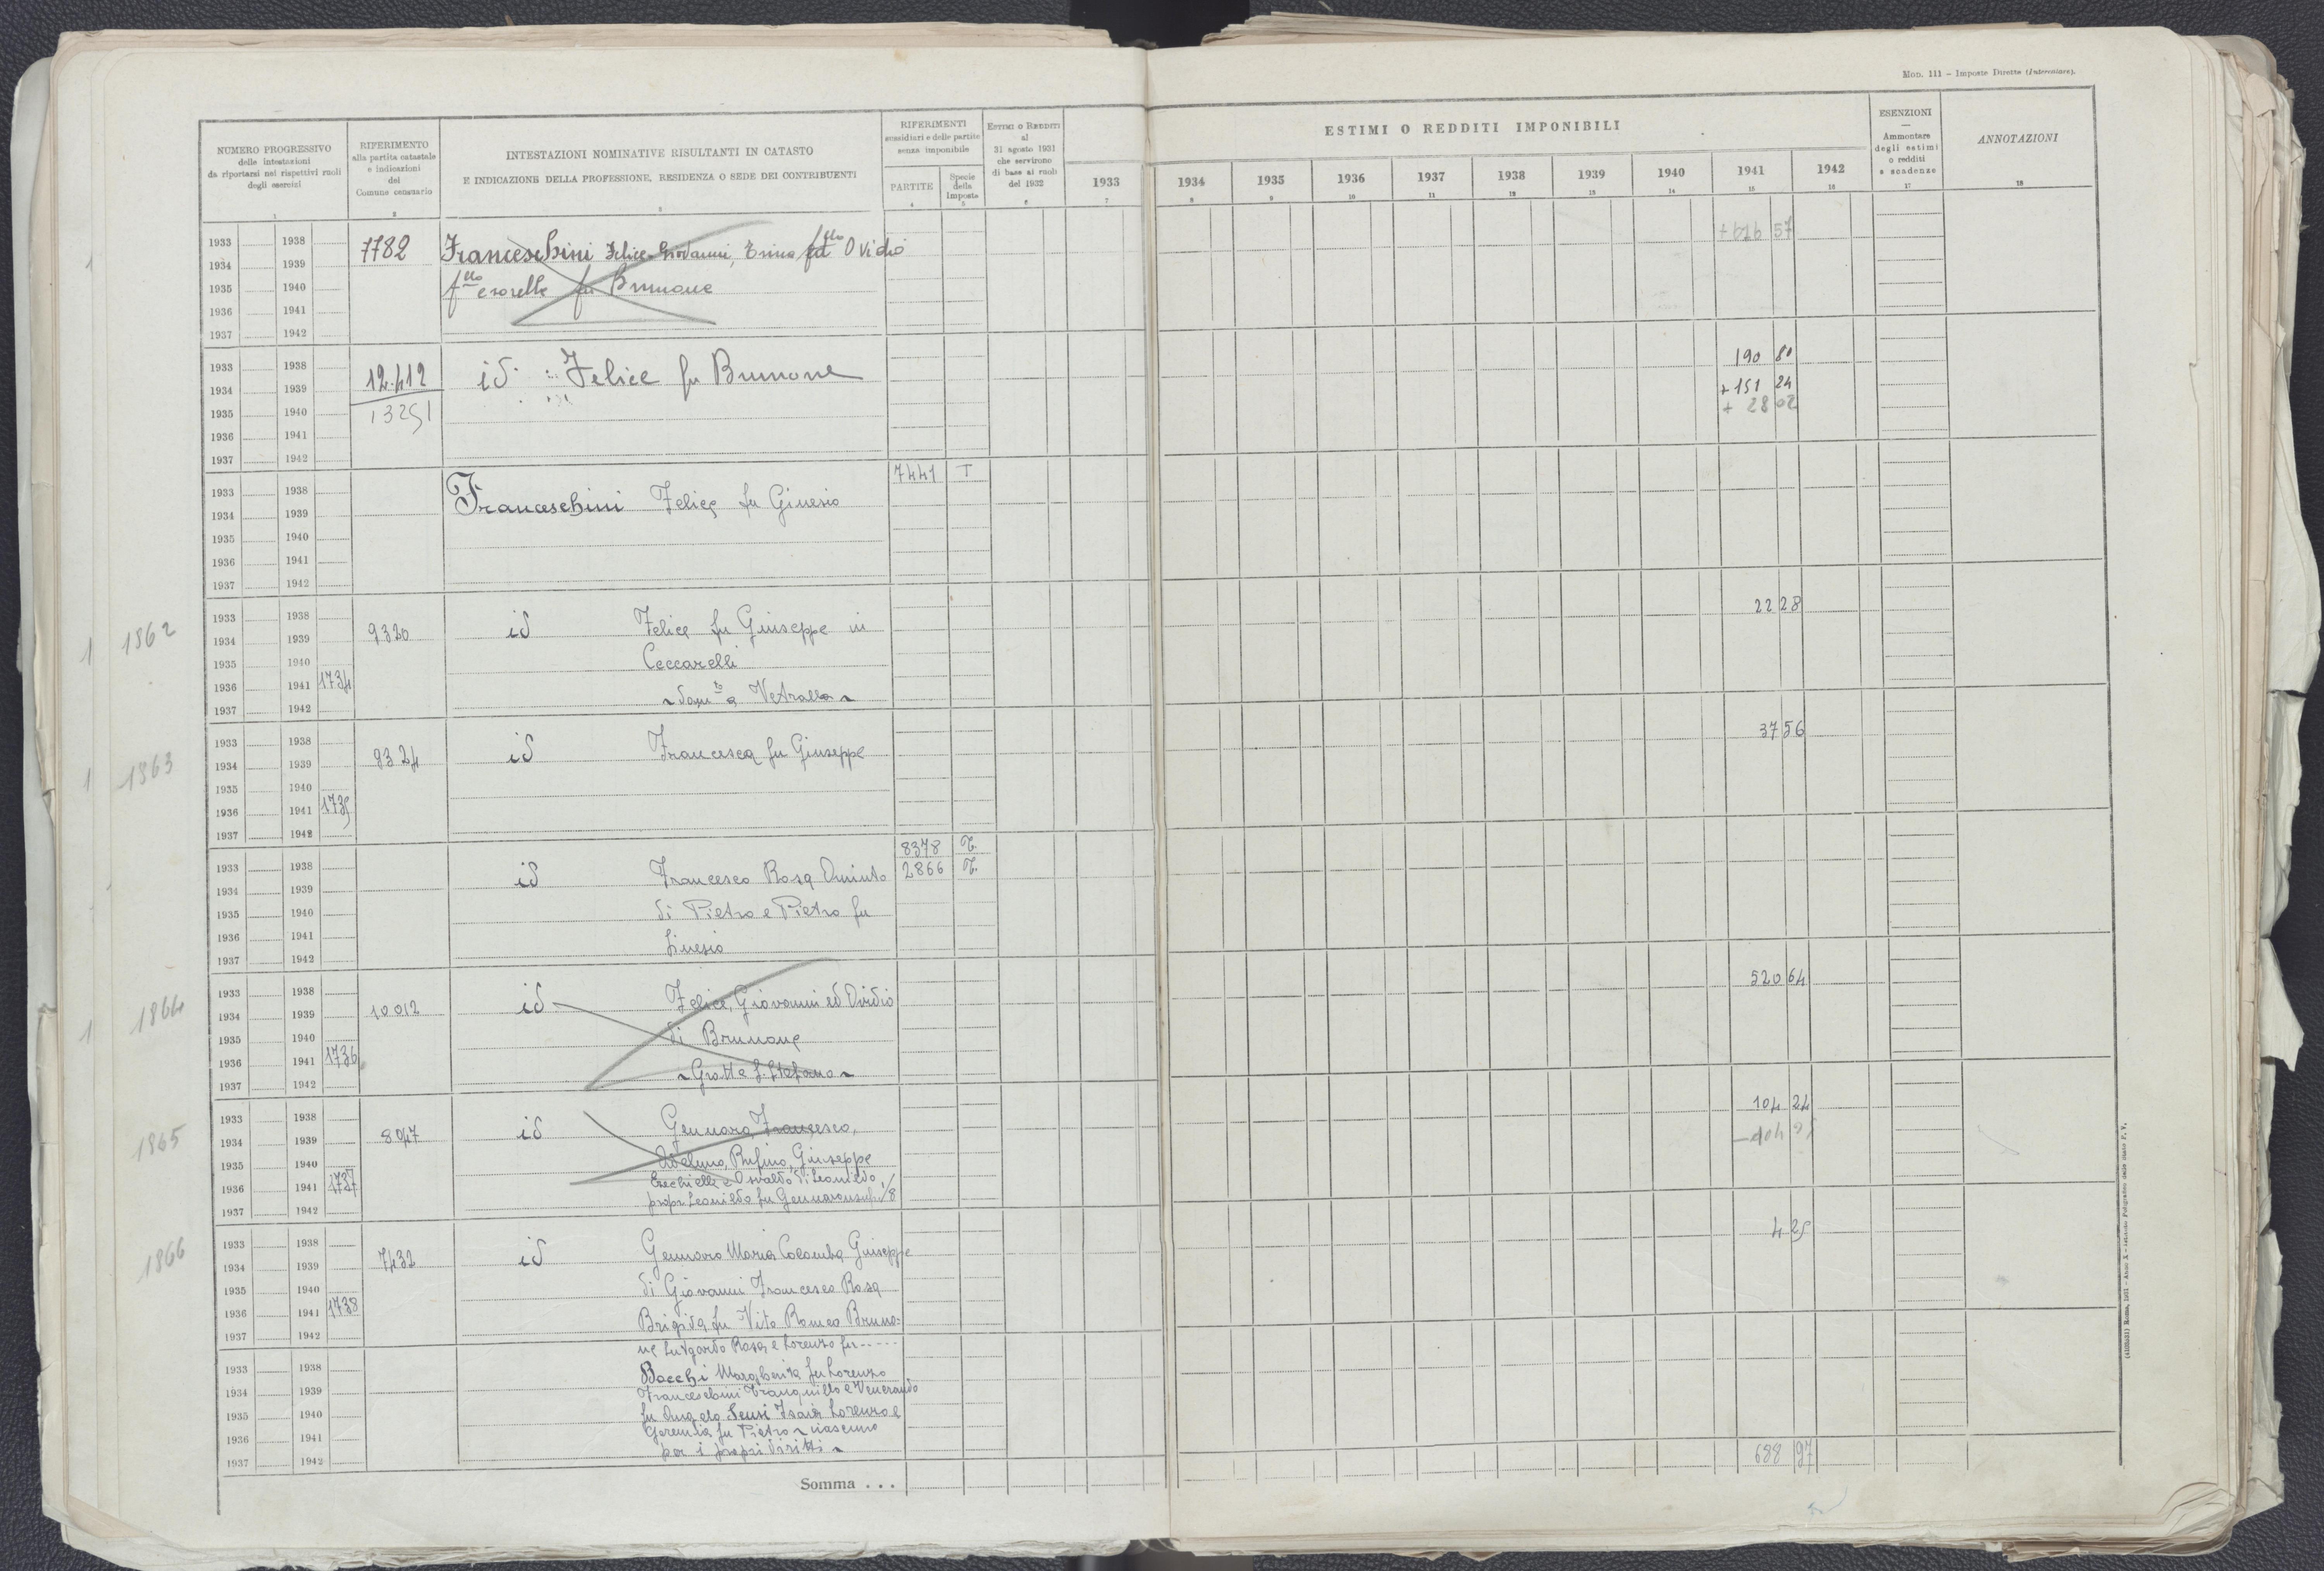 Mod. 111 – Imposte Dirette (Intercalare).
NUMERO PROGRESSIVO
delle intestazioni
da riportarsi nei rispettivi ruoli
degli esercizi
1
RIFERIMENTO
alla partita catastale
e indicazioni
del
Comune censuario
2
INTESTAZIONI NOMINATIVE RISULTANTI IN CATASTO
E INDICAZIONE DELLA PROFESSIONE, RESIDENZA O SEDE DEI CONTRIBUENTI
3
RIFERIMENTI
sussidiari e delle partite
senza imponibile
PARTITE
4
Specie
della
Imposte
5
ESTIMI O REDDITI
al
31 agosto 1931
che servirono
di base ai ruoli
del 1932
6
ESTIMI O REDDITI IMPONIBILI
1933 1934 1935 1936 1937 1938 1939 1940 1941 1942
7 8 9 10 11 12 13 14 15 16
ESENZIONI
—
Ammontare
degli estimi
o redditi
e scadenze
17
ANNOTAZIONI
18
1933 1938 7782 Franceschini Felice Giovanni, Erina Ovidio + 626 57
1934 1939
1935 1940 e sorelle fu Brunone
1936 1941
1937 1942
1933 1938 12.412 id : Felice fu Brunone 190 80
1934 1939 + 151 24
1935 1940 13251 + 28 02
1936 1941
1937 1942
7441 T
1933 1938 Franceschini Felice fu Ginesio
1934 1939
1935 1940
1936 1941
1937 1942
1 1862 1933 1938 9320 id Felice fu Giuseppe in 22 28
1934 1939
1935 1940 Ceccarelli
1936 1941 1734
1937 1942 ~ a Vetralla ~
1 1863 1933 1938 9324 id Francesca fu Giuseppe 37 56
1934 1939
1935 1940
1936 1941 1735
1937 1942
8378 T.
1933 1938 id Francesco Rosa Quinto 2866 T.
1934 1939
1935 1940 di Pietro e Pietro fu
1936 1941 Ginesio
1937 1942
1 1864 1933 1938 10012 id Felice, Giovanni ed Ovidio 520 64
1934 1939
1935 1940 di Brunone
1936 1941 1736
1937 1942 ~ Grotte S. Stefano ~
1865 1933 1938 8047 id Gennaro, Francesco, 104 24
1934 1939
1935 1940 Adelmo, Rufino, Giuseppe
1936 1941 1737 Ezechielle e Osvaldo di Leonildo,
1937 1942 propr Leonildo fu Gennaro
1866 1933 1938 7432 id Gennaro Maria Colomba Giuseppe 4 25
1934 1939
1935 1940 di Giovanni Francesco Rosa
1936 1941 1738 Brigida fu Vito Romeo Bruno=
1937 1942
ne Lutgardo Rosa e Lorenzo fu -----
1933 1938 Bocchi Margherita fu Lorenzo
1934 1939 Franceschini Tranquillo e Venerando
1935 1940 fu Angelo Sensi Isaia Lorenzo e
1936 1941 Geremia fu Pietro ~ ciascuno
1937 1942 per i propri diritti ~ 688 97
Somma . . .